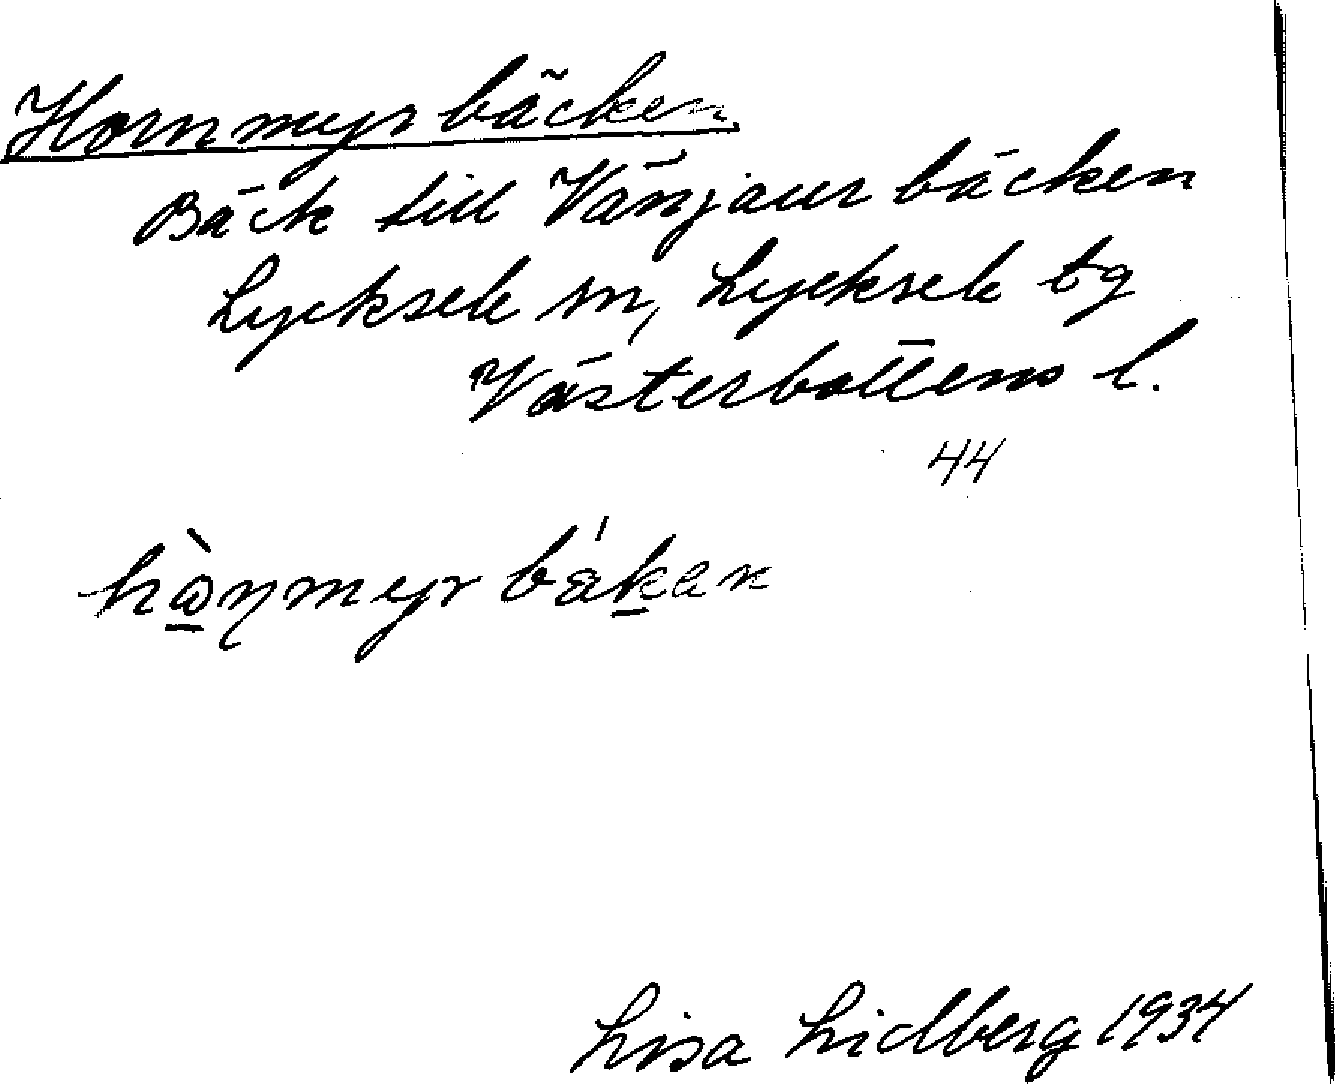 Hornmyrbäcken
Bäck till Vänjaurbäcken
Lycksele sn, Lycksele tg
Västerbottens l.
44
hɷ̀ɳmyrbǽkan
Lisa Lidberg 1934